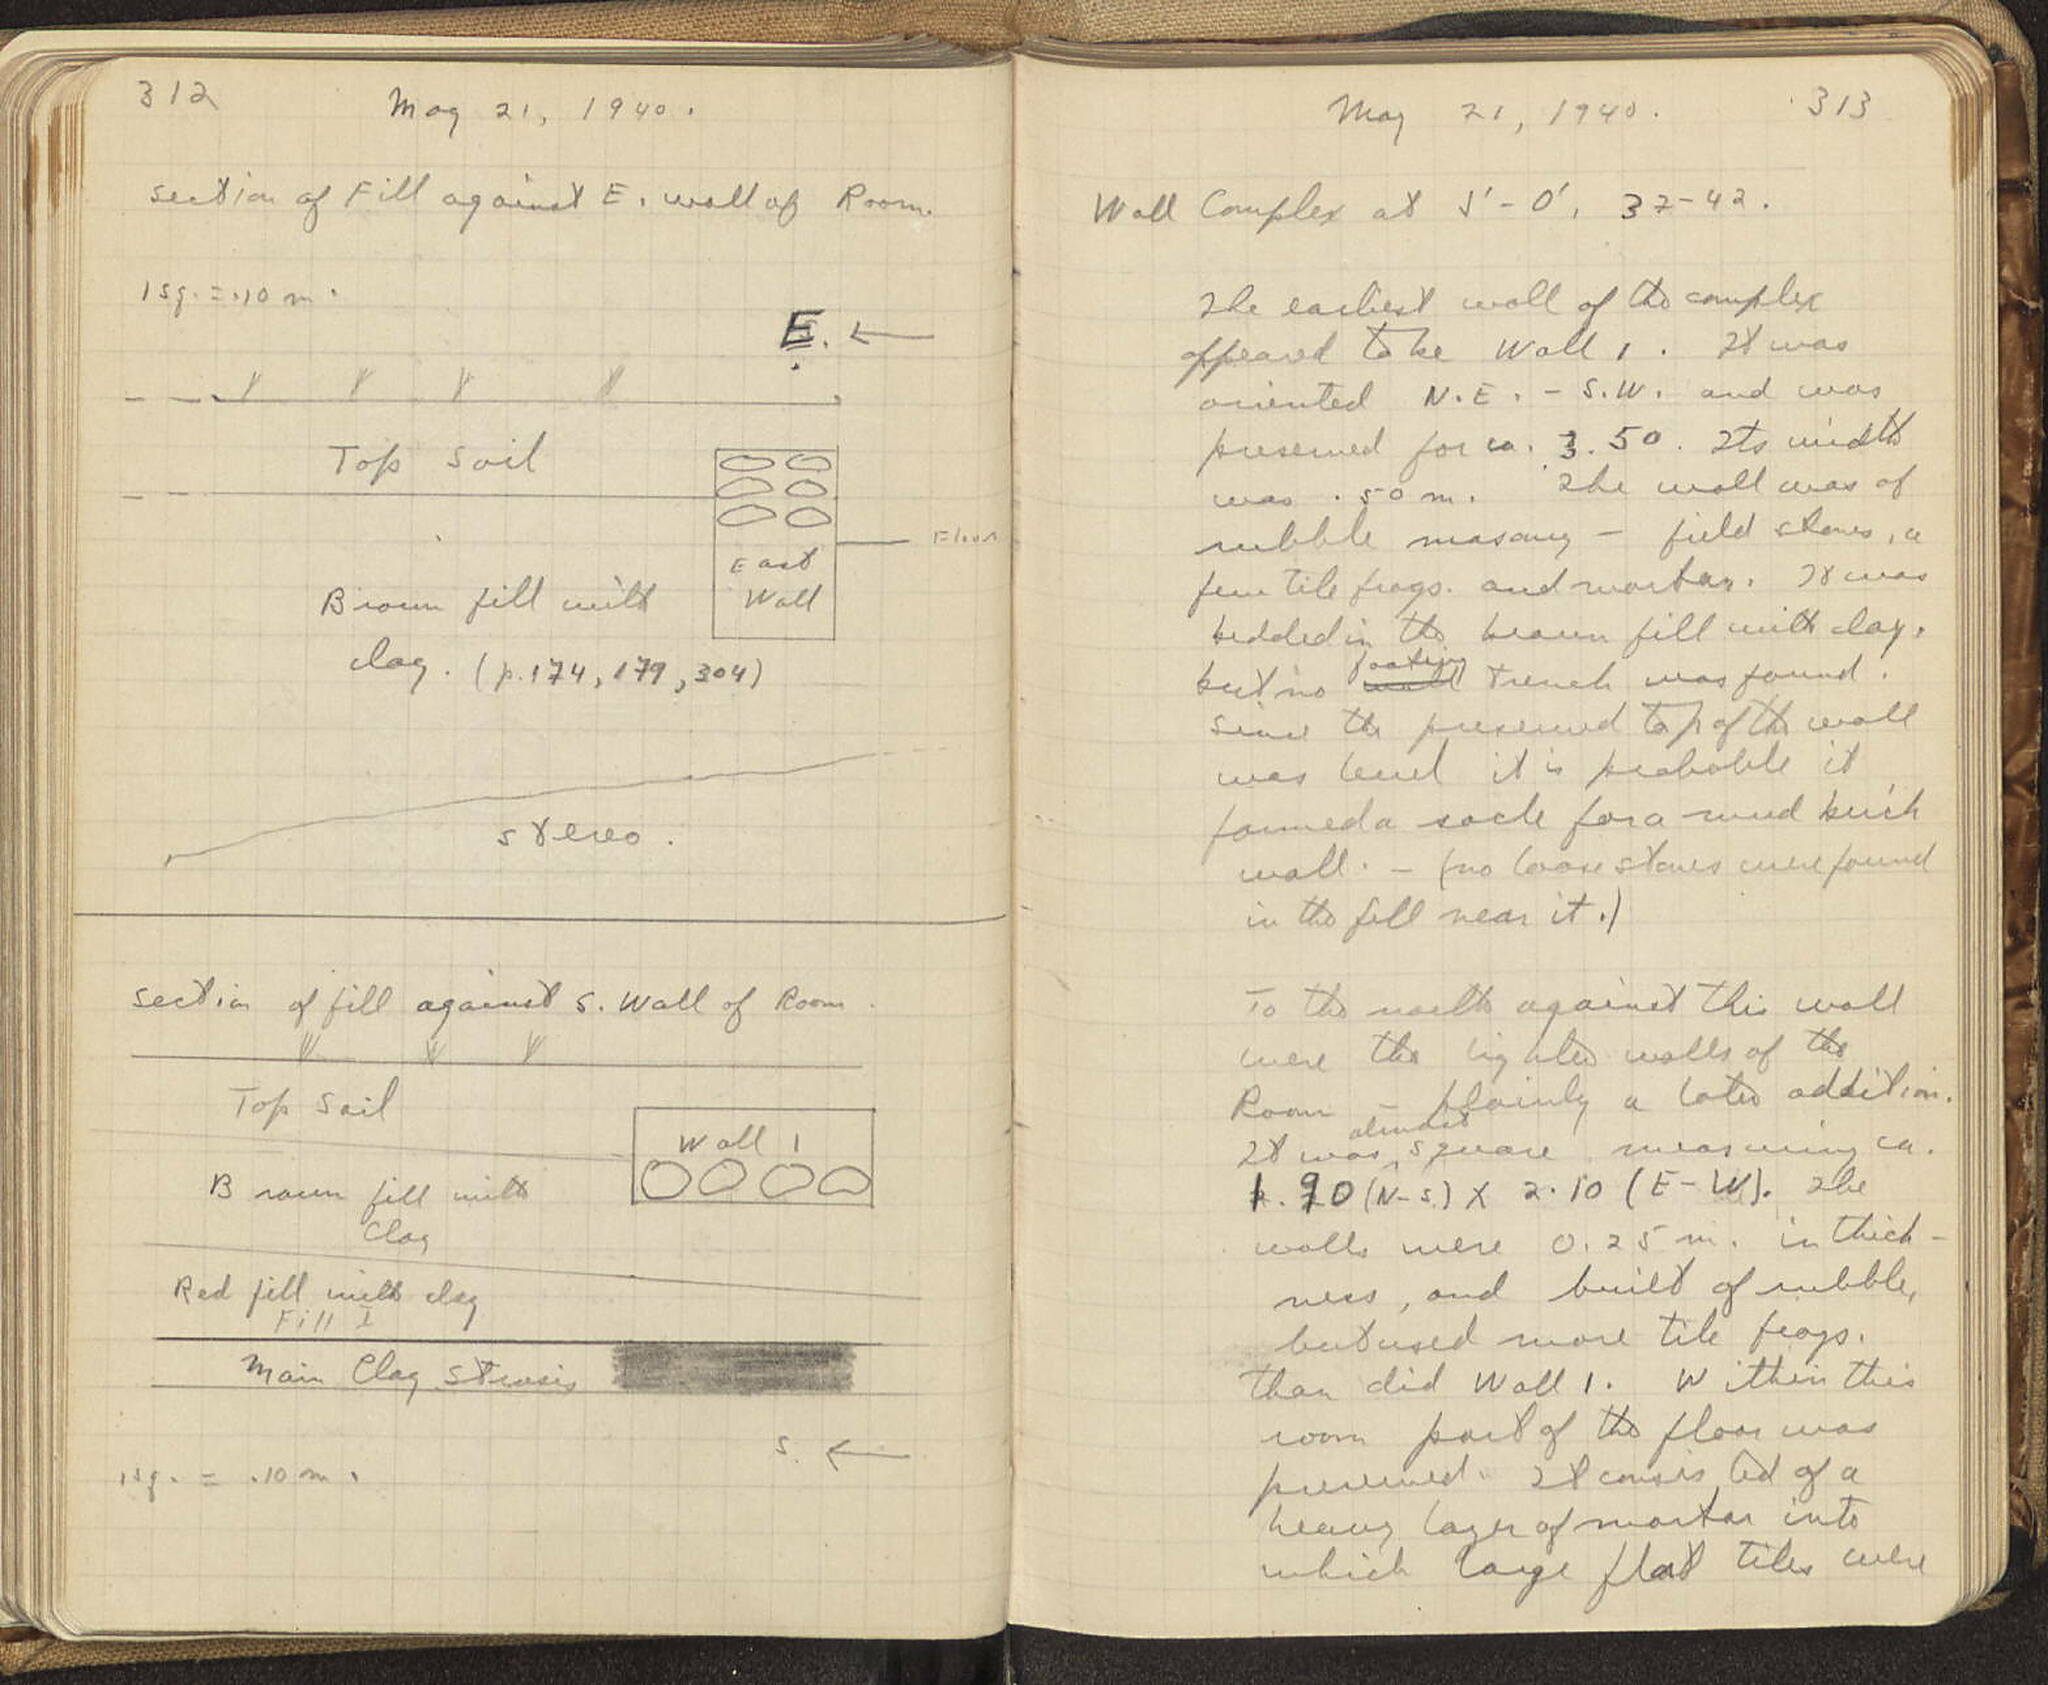 312
May 21, 1940.
Section of Fill against E. wall of Room.
1 sq. = .10 m.
E.
Top Soil
Floor
East
Wall
Brown fill with
clay. (p. 174, 179, 304)
stereo.
Section of fill against S. Wall of Room.
Top Soil
Wall 1
Brown fill with
Clay
Red fill with clay
Fill I
Main Clay Strosis
S.
1 sq. = .10 m.
May 21, 1940.
313
Wall Complex at J'-O', 37-42.
The earliest wall of the complex
appeared to be Wall 1. It was
oriented N.E. - S.W. and was
preserved for ca. 3.50. Its width
was .50 m. The wall was of
rubble masonry - field stones, a
few tile frags. and mortar. It was
bedded in the brown fill with clay,
footing
but no wall trench was found.
Since the preserved top of the wall
was level it is probable it
formed a socle for a mud brick
wall. - (no loose stones were found
in the fill near it.)
To the north against this wall
were the lighter walls of the
Room - plainly a later addition.
almost
It was square measuring ca.
1.90 (N-S.) X 2.10 (E-W). The
walls were 0.25 m. in thick-
ness, and built of rubble,
but used more tile frags.
than did Wall 1. Within this
room part of the floor was
preserved. It consisted of a
heavy layer of mortar into
which large flat tiles were